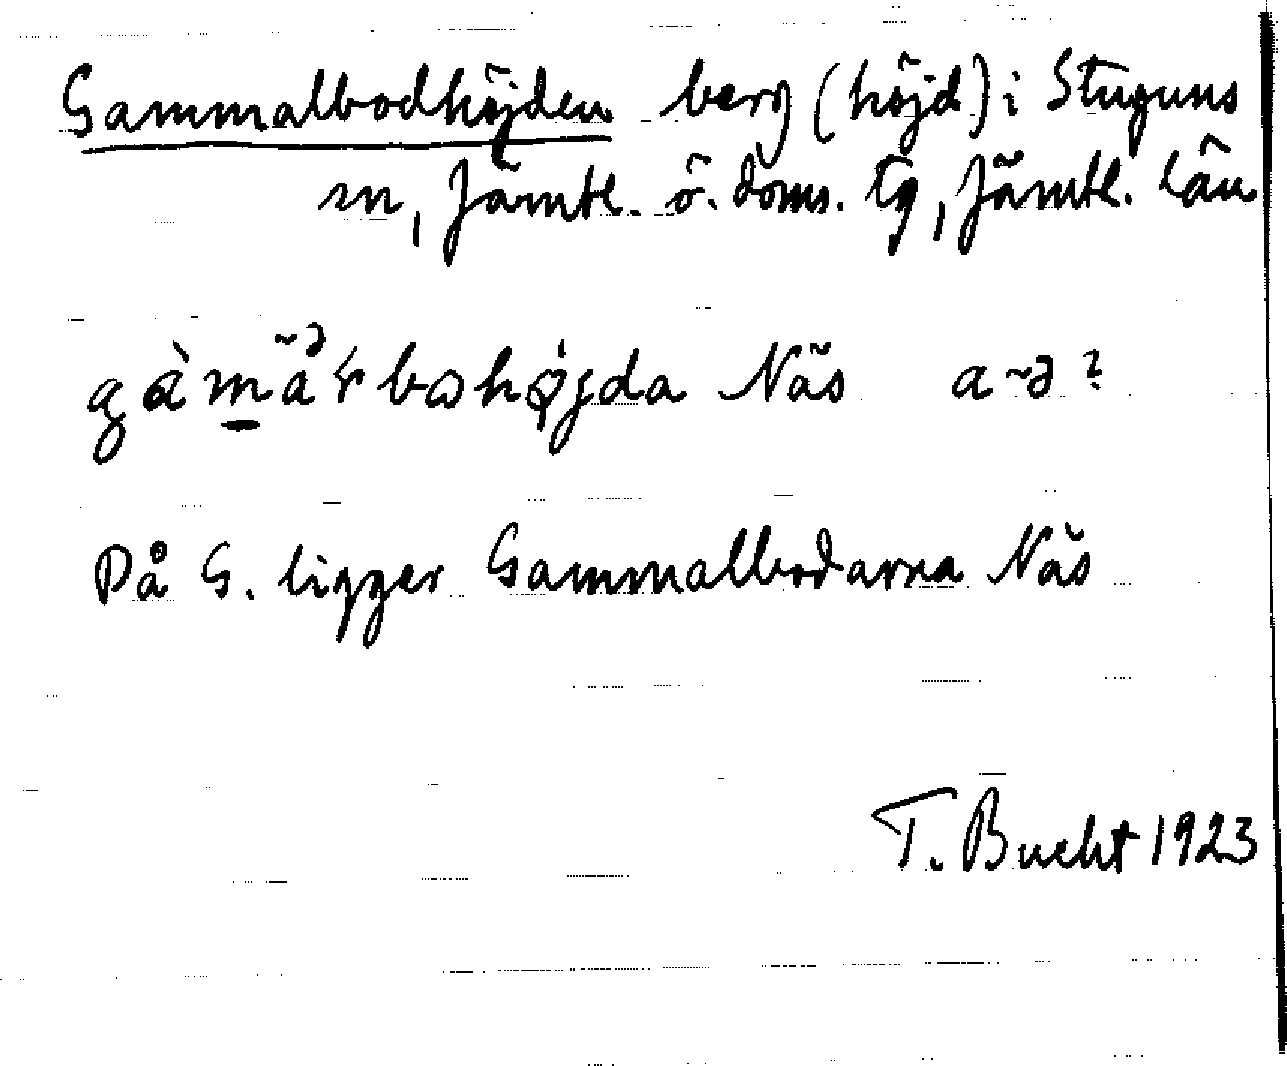 Gammalbodhöjden berg (höjd) i Stuguns
sn, Jämtl. ö. doms. tg, Jämtl. län
Näs a~ə?
På G. ligger Gammalbodarna Näs
T. Bucht 1923